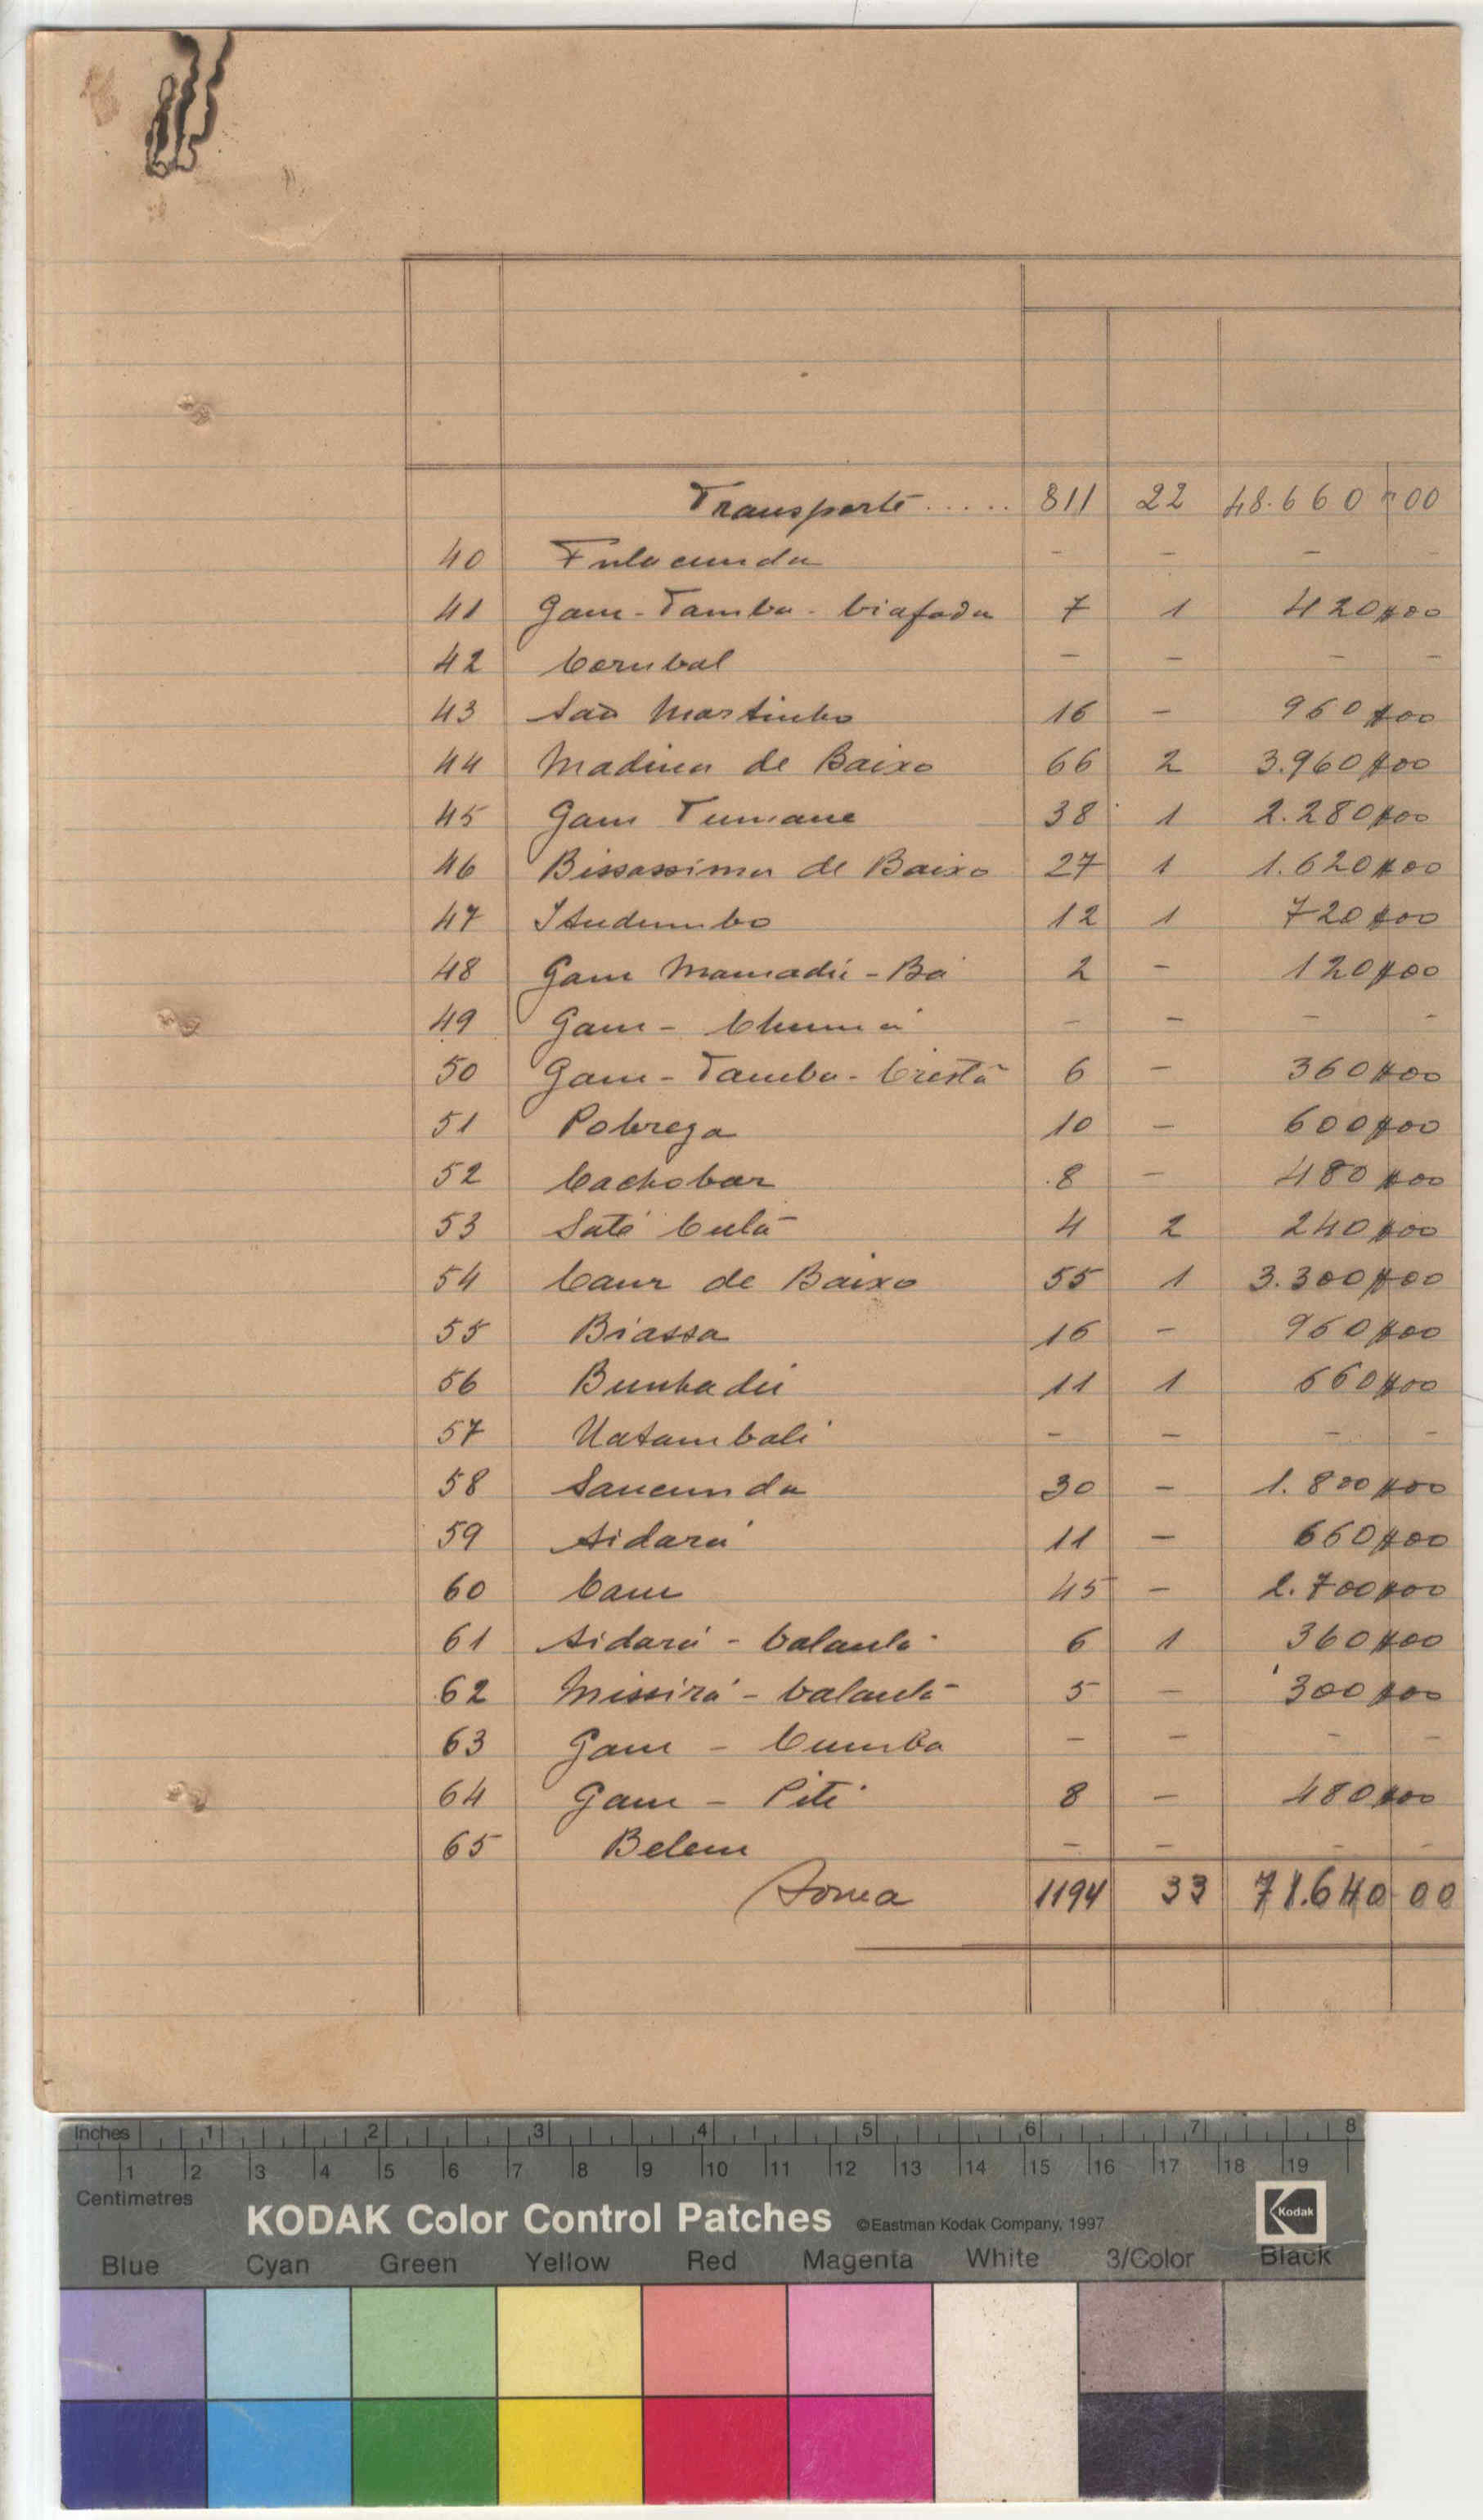 Transporte ..... 811 22 48.660$00
40 Fulacunda - - - -
41 Gam-Tamba-biafada 7 1 420$00
42 Corubal - - - -
43 São Martinho 16 - 960$00
44 Madina de Baixo 66 2 3.960$00
45 Gam Tumane 38 1 2.280$00
46 Bissassima de Baixo 27 1 1.620$00
47 Itudumbo 12 1 720$00
48 Gam Mamadú-Bá 2 - 120$00
49 Gam- Chumá - - - -
50 Gam-Tamba-Cristã 6 - 360$00
51 Pobreza 10 - 600$00
52 Cachobar 8 - 480$00
53 Saté Culá 4 2 240$00
54 Caur de Baixo 55 1 3.300$00
55 Biassa 16 - 960$00
56 Bunhadú 11 1 660$00
57 Uatambali - - - -
58 Sancunda 30 - 1.800$00
59 Aidará 11 - 660$00
60 Cam 45 - 2.700$00
61 Aidará - balanta 6 1 360$00
62 Missirá - balanta 5 - 300$00
63 Gam - Cumba - - - -
64 Gam - Piti 8 - 480$00
65 Belem - - - -
Soma 1194 33 71.640 00
Inches 1 2 3 4 5 6 7 8
1 2 3 4 5 6 7 8 9 10 11 12 13 14 15 16 17 18 19
Centimetres
KODAK Color Control Patches ©Eastman Kodak Company, 1997 Kodak
Blue Cyan Green Yellow Red Magenta White 3/Color Black